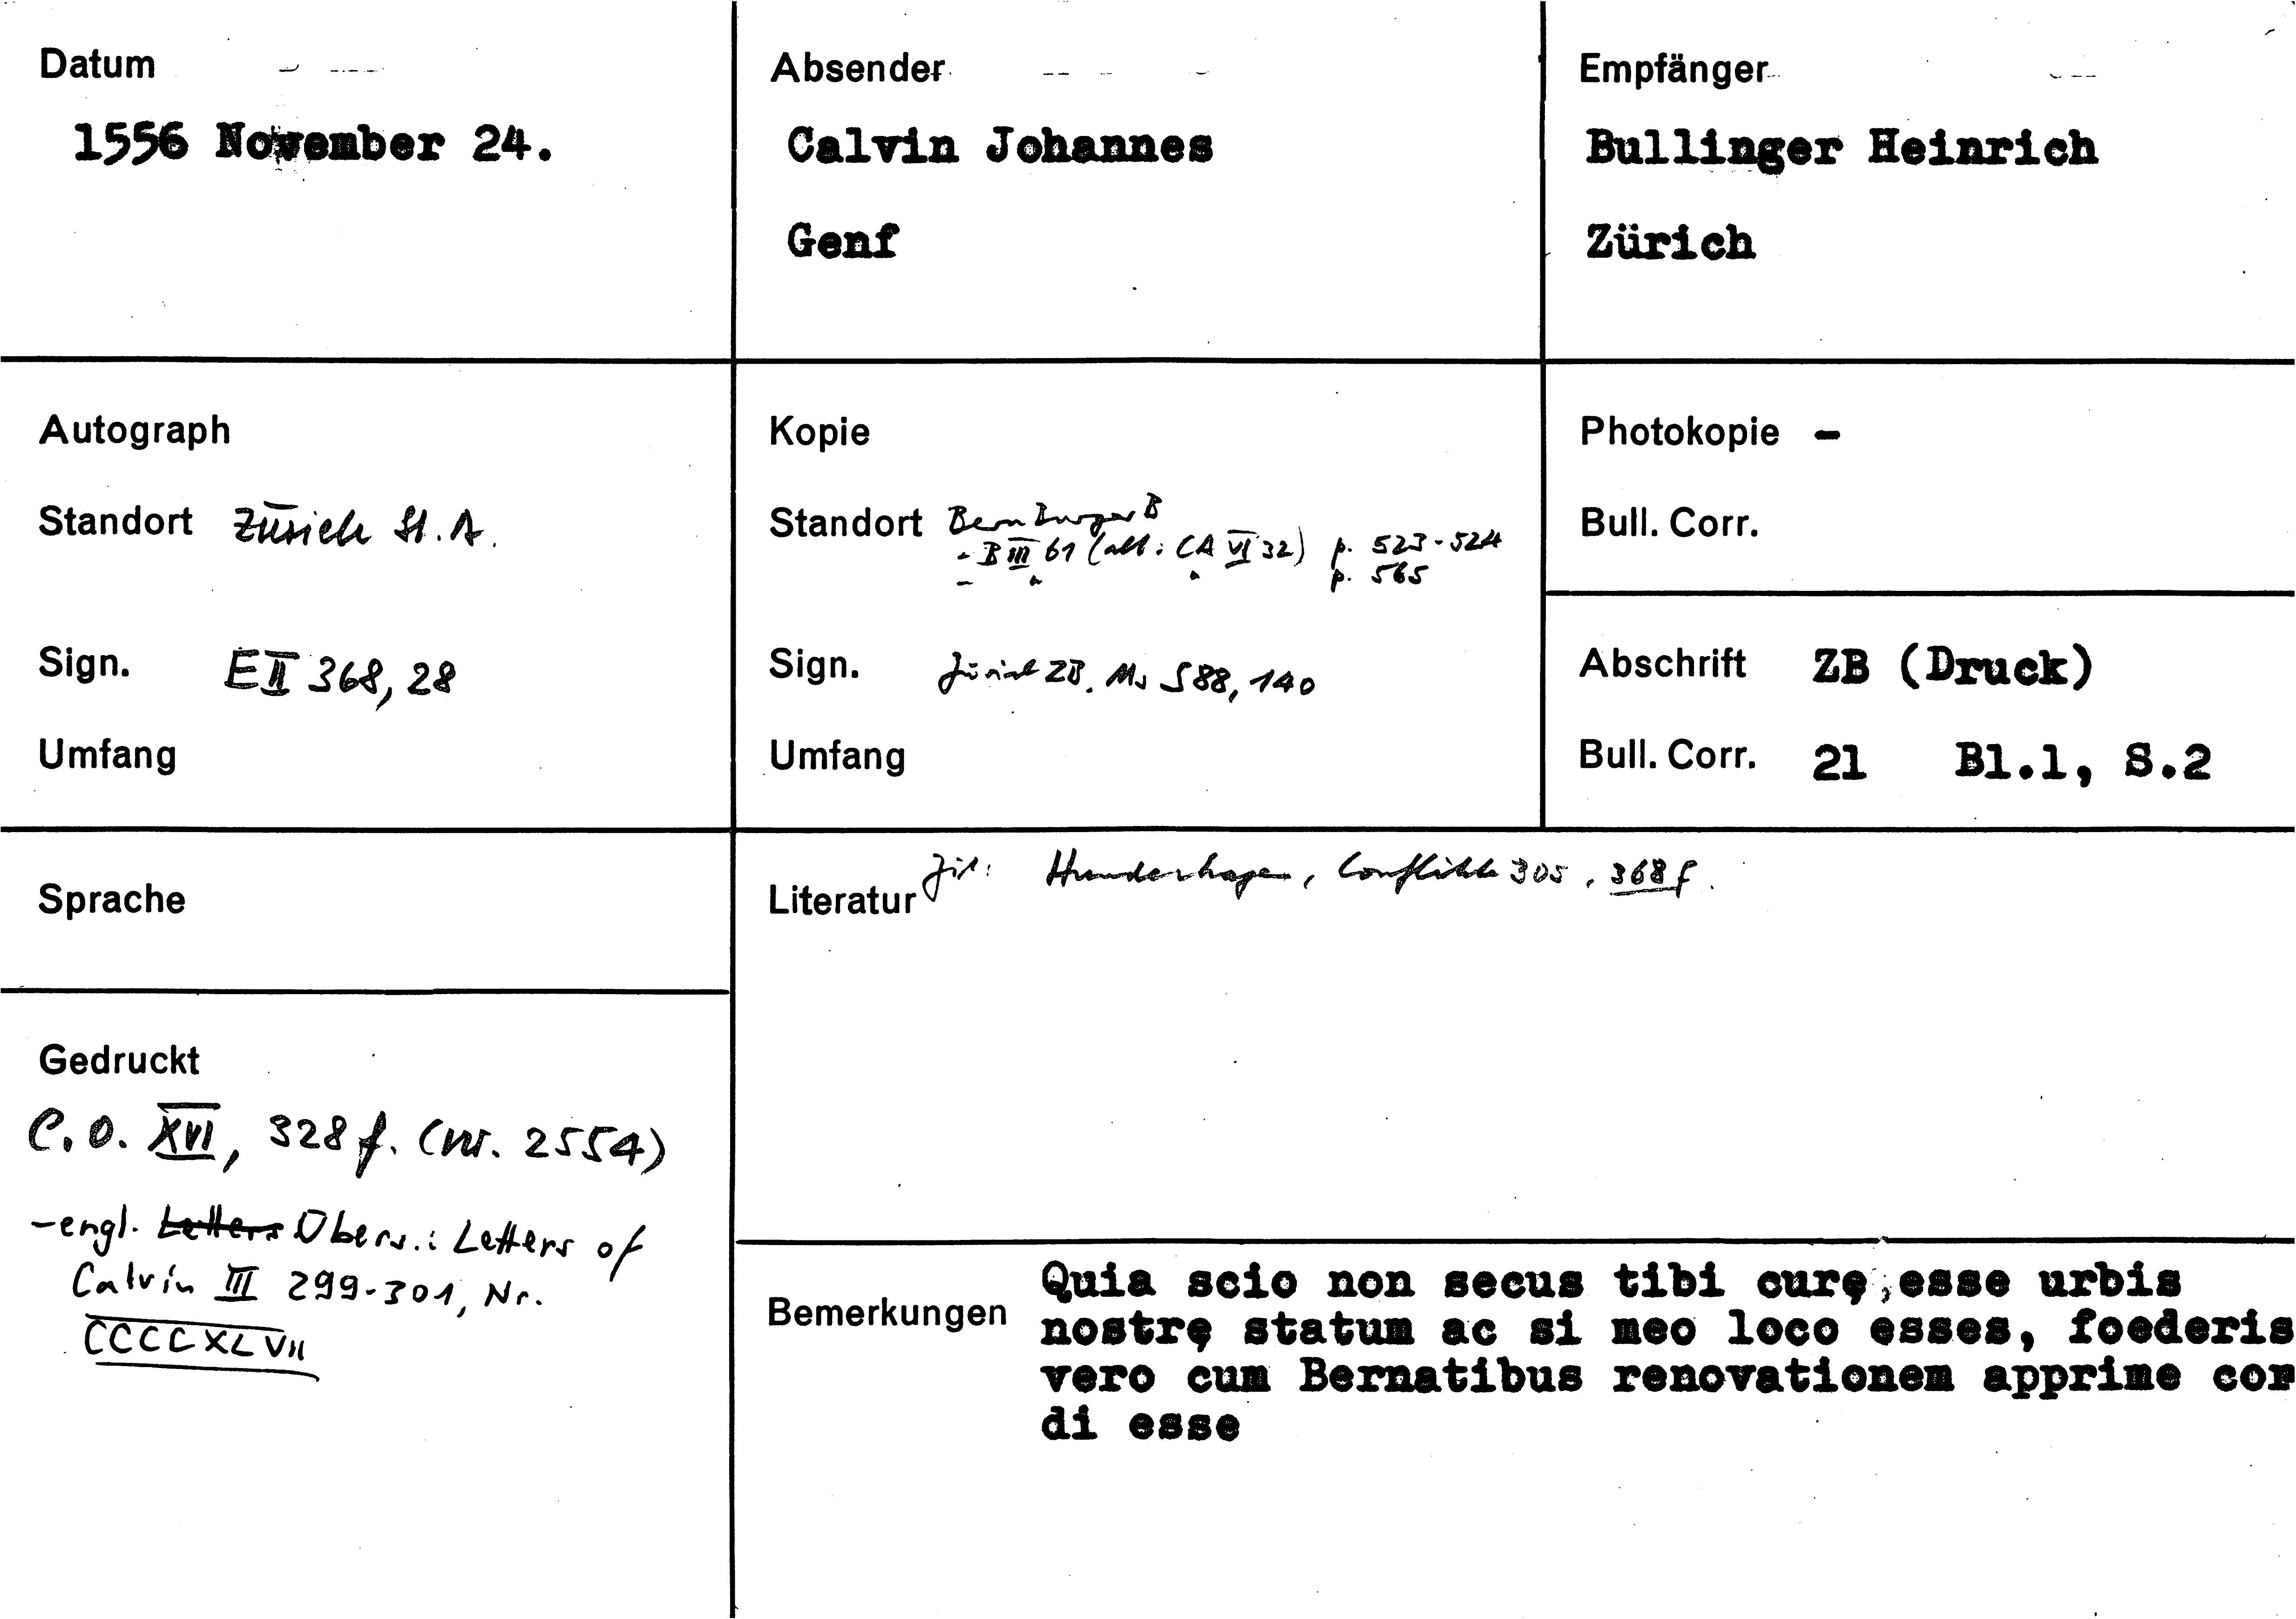 Datum
1556 November 24.
Absender
Calvin Johannes
Genf
Empfänger
Bullinger Heinrich
Zürich
Autograph
Standort Zürich St. A.
Sign. E II 368, 28
Umfang
Kopie
Standort Bern Burger B
- B III 61 (alt: CA VI 32) p. 523-524
- " " p. 565
Sign. Zürich ZB. Ms S 88, 140
Umfang
Photokopie -
Bull. Corr.
Abschrift ZB (Druck)
Bull. Corr. 21 Bl.1, S.2
Sprache
Literatur Zit: Hundeshagen, Conflikte 305, 368 f.
Gedruckt
C. O. XVI, 328 f. (Nr. 2554)
-engl. Letters Übers.: Letters of
Calvin III 299-301, Nr.
CCCCXLVII
Bemerkungen
Quia scio non secus tibi curę esse urbis
nostrę statum ac si meo loco esses, foederis
vero cum Bernatibus renovationem apprime cor
di esse